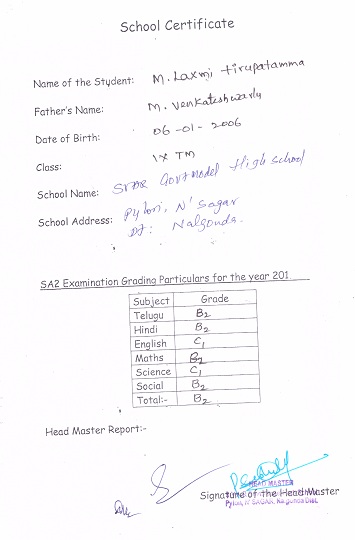 School Certificate
Name of the Student: M. Laxmi Tirupatamma
Father's Name: M. Venkateshwarlu
Date of Birth: 06-01-2006
Class: IX TM
School Name: Govt Model High School
School Address: Pylon, N' Sagar
Dt: Nalgonda.
SA2 Examination Grading Particulars for the year 201
Subject Grade
Telugu B2
Hindi B2
English C1
Maths B2
Science C1
Social B2
Total:- B2
Head Master Report:-
HEAD MASTER
Signature of the Head Master
Pylon, N' SAGAR, Nalgonda Dist.